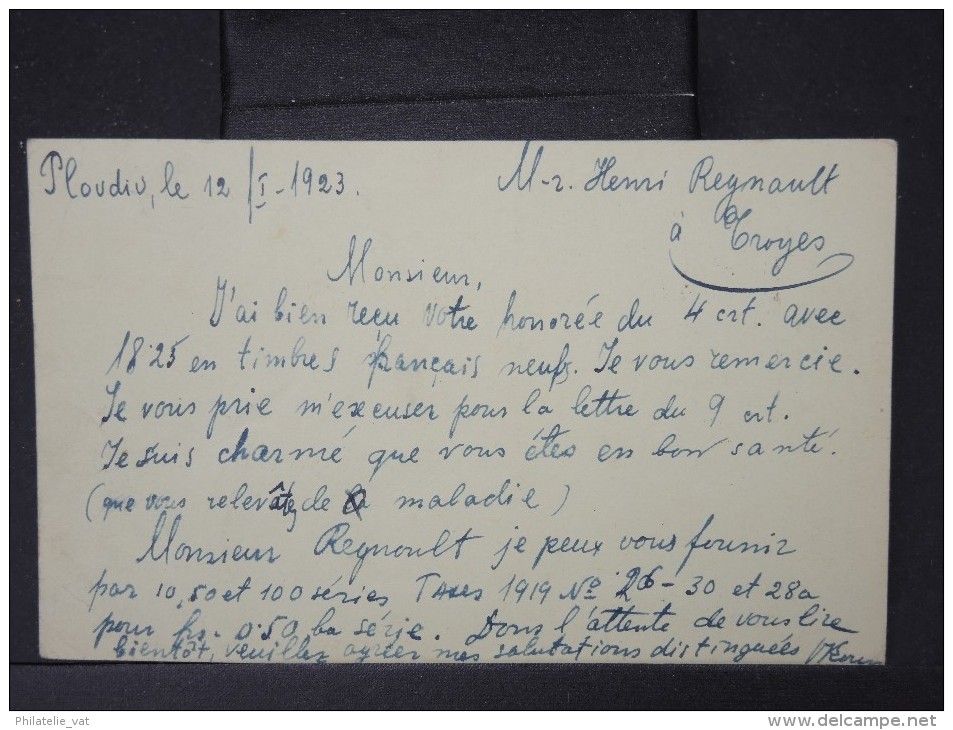 Plovdiv, le 12/I-1923.
M-r. Henri Regnault
à Troyes
Monsieur,
J'ai bien reçu votre honorée du 4 crt. avec
18.25 en timbres français neufs. Je vous remercie.
Je vous prie m'excuser pour la lettre du 9 crt.
Je suis charmé que vous étes en bon santé.
(que vous relevâtes de maladie)
Monsieur Regnoult je peux vous fournir
par 10, 50 et 100 séries Taxes 1919 No 26-30 et 28a
pour frs. 0.50 la série. Dans l'attente de vous lire
bientôt, veuillez agréer mes salutations distinguées
Philatelie_vat
www.delcampe.net